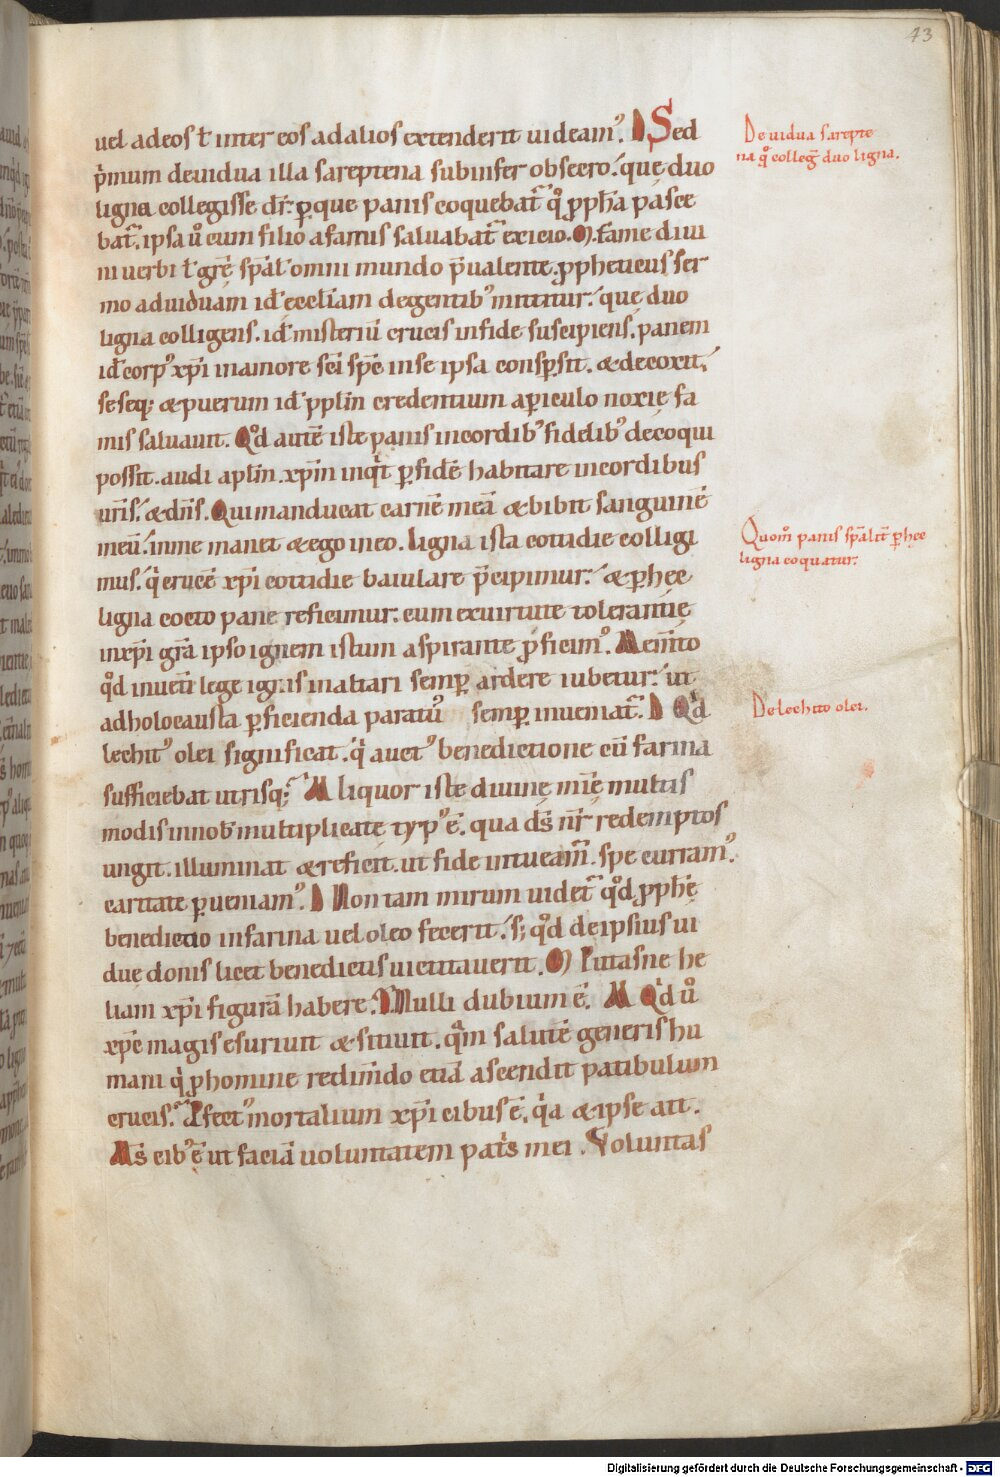 43
uel ad eos ł inter eos ad alios extenderit uideam᷒. D Sed
De uidua sarepte
p̄mum de uidua illa sareptena subinfer obsecro. quę duo
na q̊ collegit duo ligna.
ligna collegisse dr̄. ꝑ que panis coquebat᷑ q̊ ꝓph̄a pasce
bat᷑. ipsa ů cum filio a famis saluabat᷑ exicio. M. fame diui
ni uerbi ł grę̄ sp̄al omni mundo p̄ualente. ꝓpheticus ser
mo ad uiduam id ęcclīam degentib᷒ mittitur. quę duo
ligna colligens. id misteriū crucis in fide suscipiens. panem
id corp᷒ xp̄i in amore sc̄i sp̄c in se ipsa consꝑsit. & decoxit.
se seq; & puerum id ppl̄m credentium a ꝑiculo noxię fa
mis saluauit. Qd̊ autē iste panis in cordib᷒ fidelib᷒ decoqui
possit. audi apl̄m. xp̄m inqͥt ꝑ fidē habitare in cordibus
ur̄is. & dn̄s. Qui manducat carnē meā & bibit sanguinē
Quom̊ panis sp̄alit̄ ꝑ hęc
meū. in me manet & ego in eo. ligna ista cotidie colligi
ligna coquatur.
mus. qͥ crucē xp̄i cottidie baiulare p̄cipimur. & ꝑ hęc
ligna cocto pane reficimur. cum ex uirtute tolerantię
in xp̄i gr̄a ipso ignem istum aspirante ꝓficim᷒. A Mem̄to
qd̊ in uet̄i lege ignis in altari semꝑ ardere iubetur. ut
ad holocausta ꝑficienda paratus semꝑ inueniat᷑. D Qͥd
De lechito olei.
lechit᷒ olei significat. qͥ auct᷒ benedictione cū farina
sufficiebat utrisq;. M liquor iste diuinę mīę multis
modis in nob̄ multiplicatę typ᷒ ē. qua ds̄ nr̄ redemptos
ungit. illuminat & reficit. ut fide intueam̄. spe curram᷒.
caritate ꝑueniam᷒. D Non tam mirum uidet᷑ qd̊ ꝓph̄ę
benedictio in farina uel oleo fecerit. s; qd̊ de ipsius ui
duę donis licet benedictis uictitauerit. M Putasne he
liam xp̄i figurā habere. D Nulli dubium ē. M Qͥd ů
xp̄c magis esuriuit & sitiuit. qm̄ salutē generis hu
mani qͥ ꝓ homine redimendo etiā ascendit patibulum
crucis. Ꝓfect᷒ mortalium xp̄i cibus ē. qͥa & ipse ait.
M̄s cib᷒ ē ut faciā uoluntatem patͥs mei. Voluntas
Digitalisierung gefördert durch die Deutsche Forschungsgemeinschaft - DFG